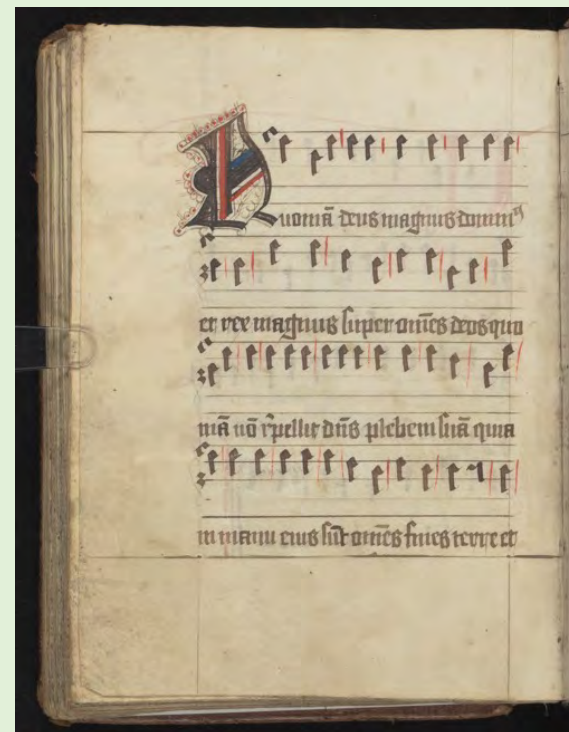 Quoniā deus magnus domin⁹
et rex magnus super om̄es deos quo
niā nō r̄pellit dn̄s plebem suā quia
in manu eius sūt om̄es fines terre et